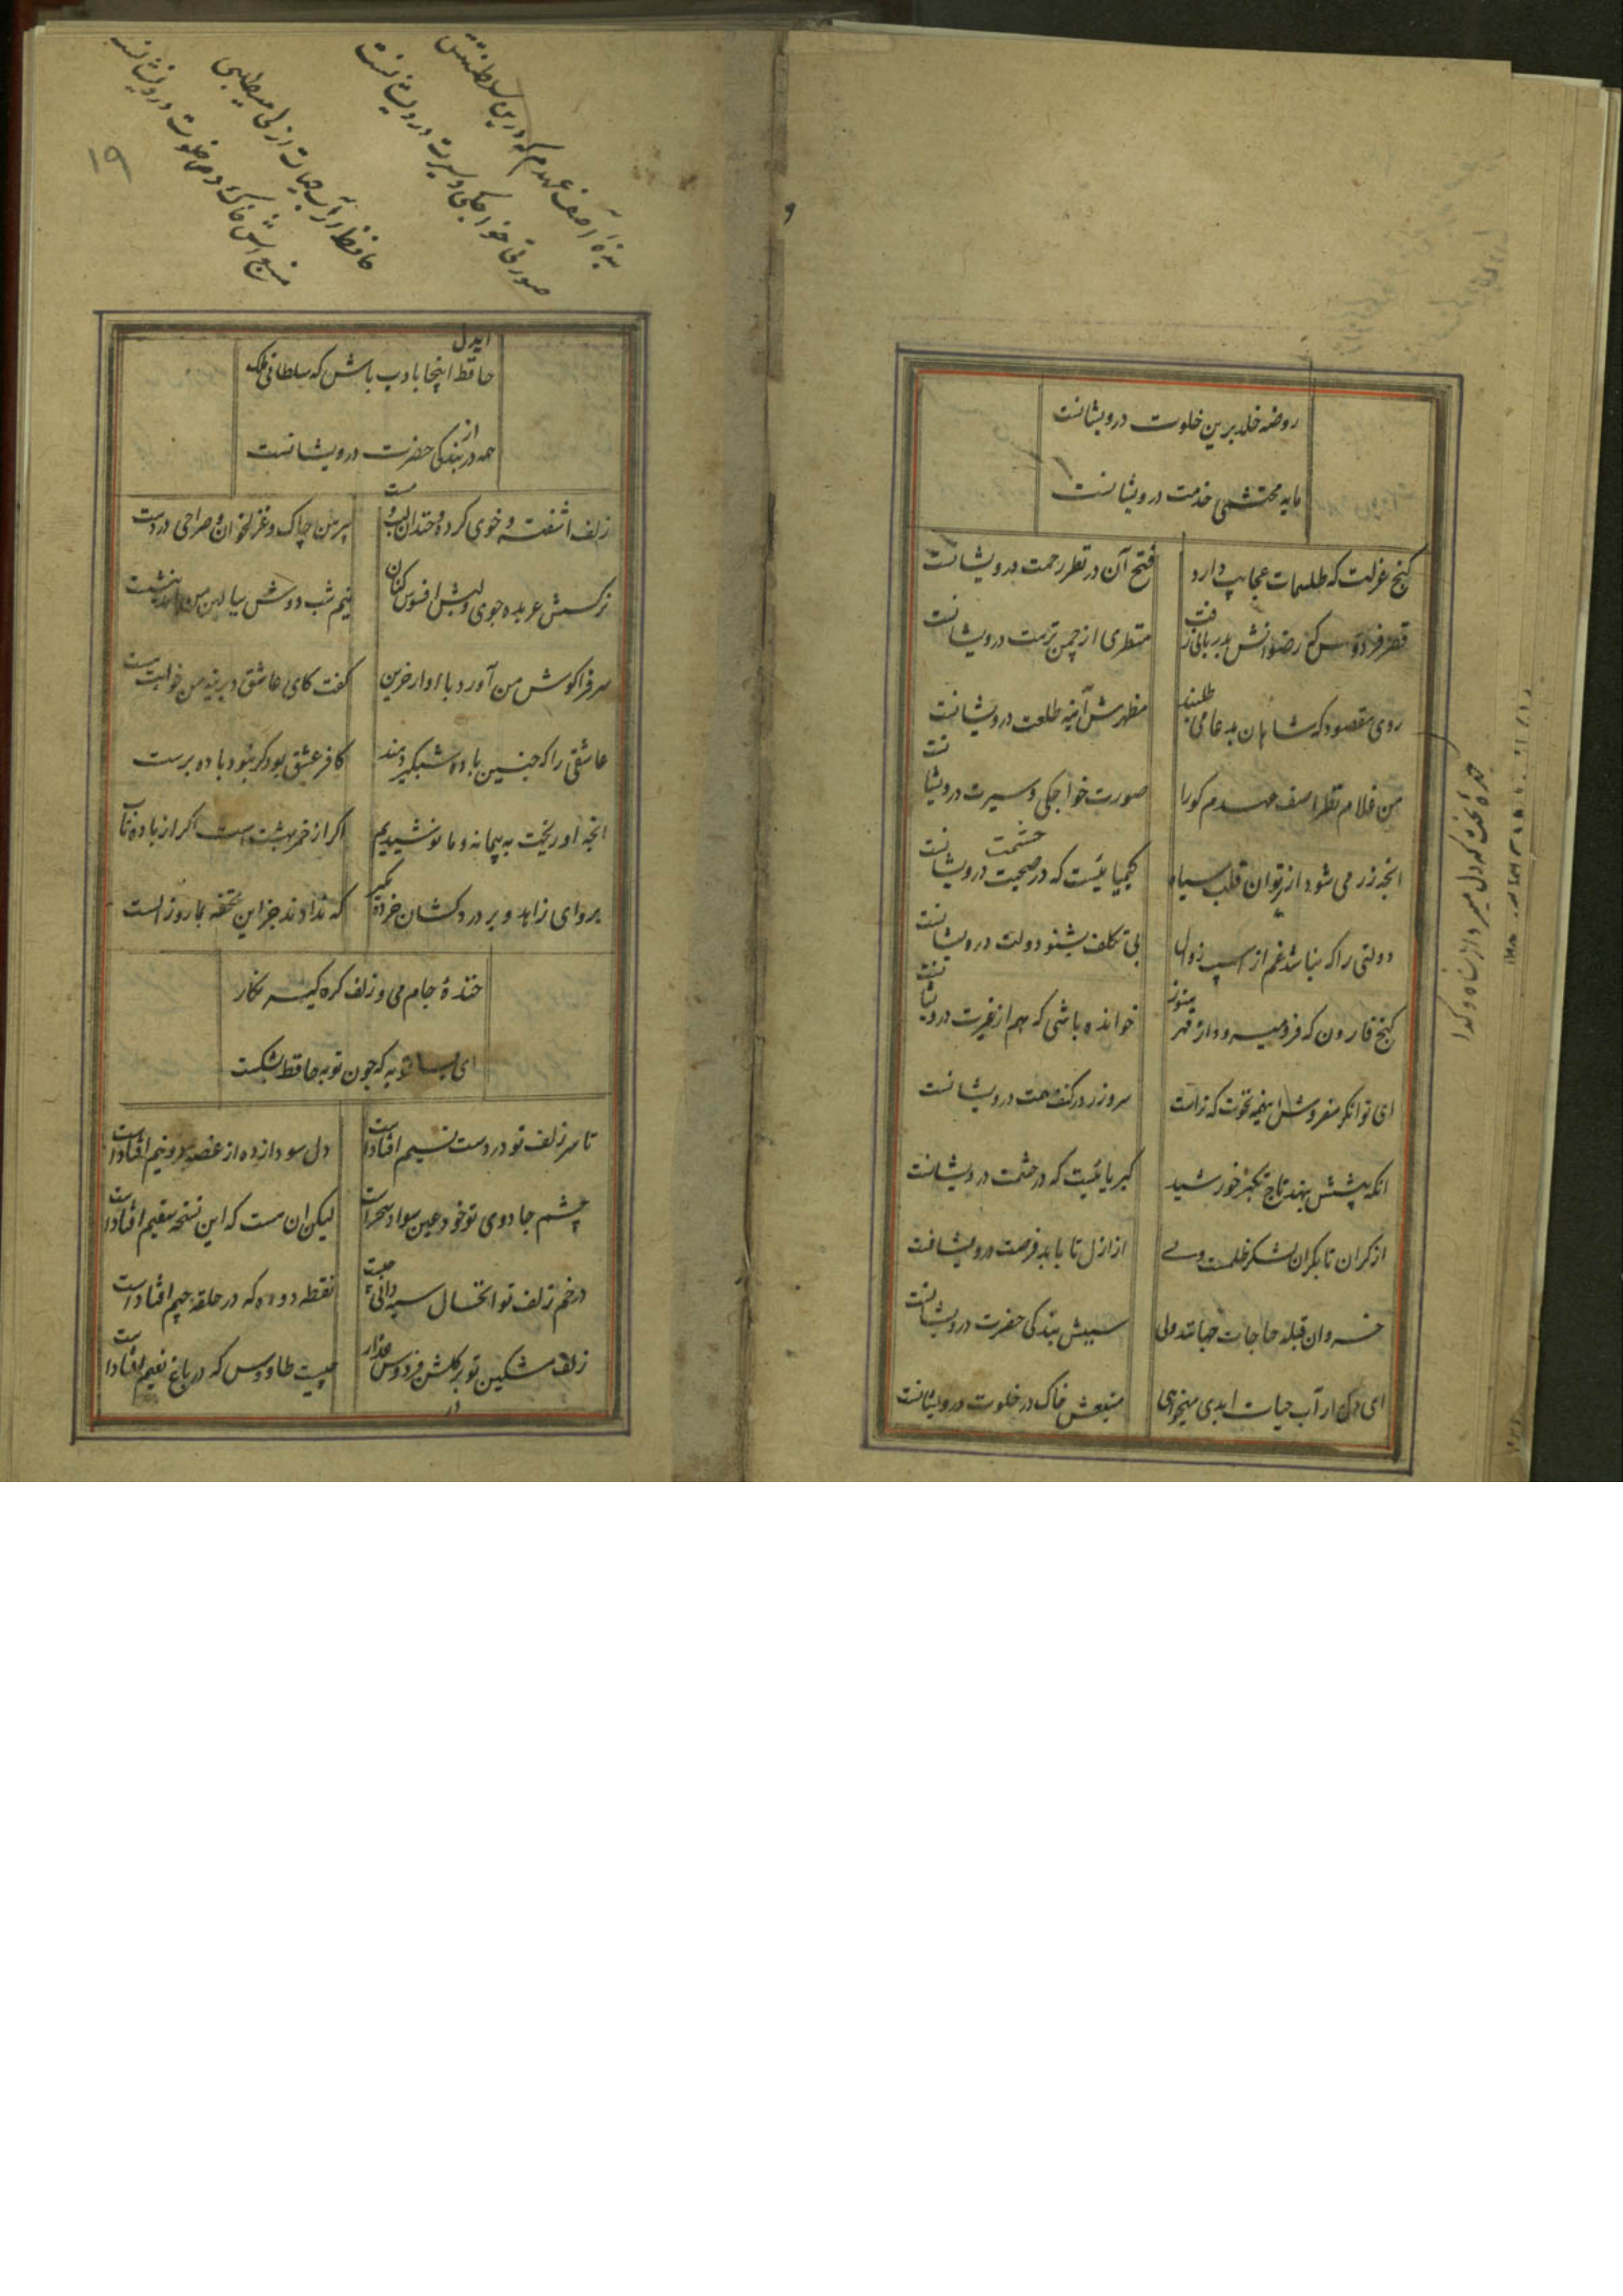 روضه خلد برین خلوت درویشانست
مایه محتشمی خدمت درویشانست
کنج عزلت که طلسمات عجایب دارد فتح آن در نظر رحمت درویشانست
قصر فردوس که رضوانش بدربانی رفت منظری از چمن نزهت درویشانست
روی مقصود که شاهان بدعا می طلبند مظهرش آینه طلعت درویشانست
من غلام نظر اصف عهدم کورا صورت خواجکی و سیرت درویشانست
انچه زر می شود از پرتو ان قلب سیاه کیمیائیست که در صحبت درویشانست
حشمت
دولتی را که نباشد غم از اسیب زوال بی تکلف بشنو دولت درویشانست
کنج قارون که فرو میرود از قهر هنوز خوانده باشی که هم از غیرت درویشانست
ای توانکر مفروش اینهمه نخوت که ترا سر و زر در کنف همت درویشانست
انکه پیشش بنهد تاج تکبر خورشید کبریائیست که در حشمت درویشانست
از کران تا بکران لشکر ظلمست ولی از ازل تا بابد فرصت درویشانست
خسروان قبله حاجات جهانند ولی سببش بندکی حضرت درویشانست
ای دل ار آب حیات ابدی میخواهی منبعش خاک در خلوت درویشانست
بنده آصف عهدم که درین سلطنتش
صورت خواجکی و سیرت درویشانست
حافظ ار آب حیات ازلی میطلبی
منبعش خاک در خلوت درویشانست
۱۹
ایدل
حافظ اینجا بادب باش که سلطانی ملک
از
همه در بندکی حضرت درویشانست
زلف اشفته و خوی کرده و خندان لب و مست پیرهن چاک و غزلخوان و صراحی در دست
نرکسش عربده جوی و لبش افسوس کنان نیم شب دوش ببالین من امد بنشست
سر فرا کوش من آورد باواز حزین کفت کای عاشق دیرینه من خوابت هست
عاشقی را که چنین باده شبکیر دهند کافر عشق بود کر نبود باده پرست
انچه او ریخت به پیمانه و ما نوشیدیم اکر از خمر بهشتست اکر از باده ناب
برو ای زاهد و بر دردکشان خرده مکیر که ندادند جز این تحفه بما روز الست
خندهٔ جام می و زلف کره کیر نکار
ای بسا توبه که چون توبه حافظ بشکست
تا سر زلف تو در دست نسیم افتادست دل سودازده از غصه دو نیم افتادست
چشم جادوی تو خود عین سواد سحرست لیکن ان هست که این نسخه سقیم افتادست
در خم زلف تو انخال سیه دانی چیست نقطه دوده که در حلقه جیم افتادست
زلف مشکین تو بر کلشن فردوس عذار چیست طاووس که در باغ نعیم افتادست
در